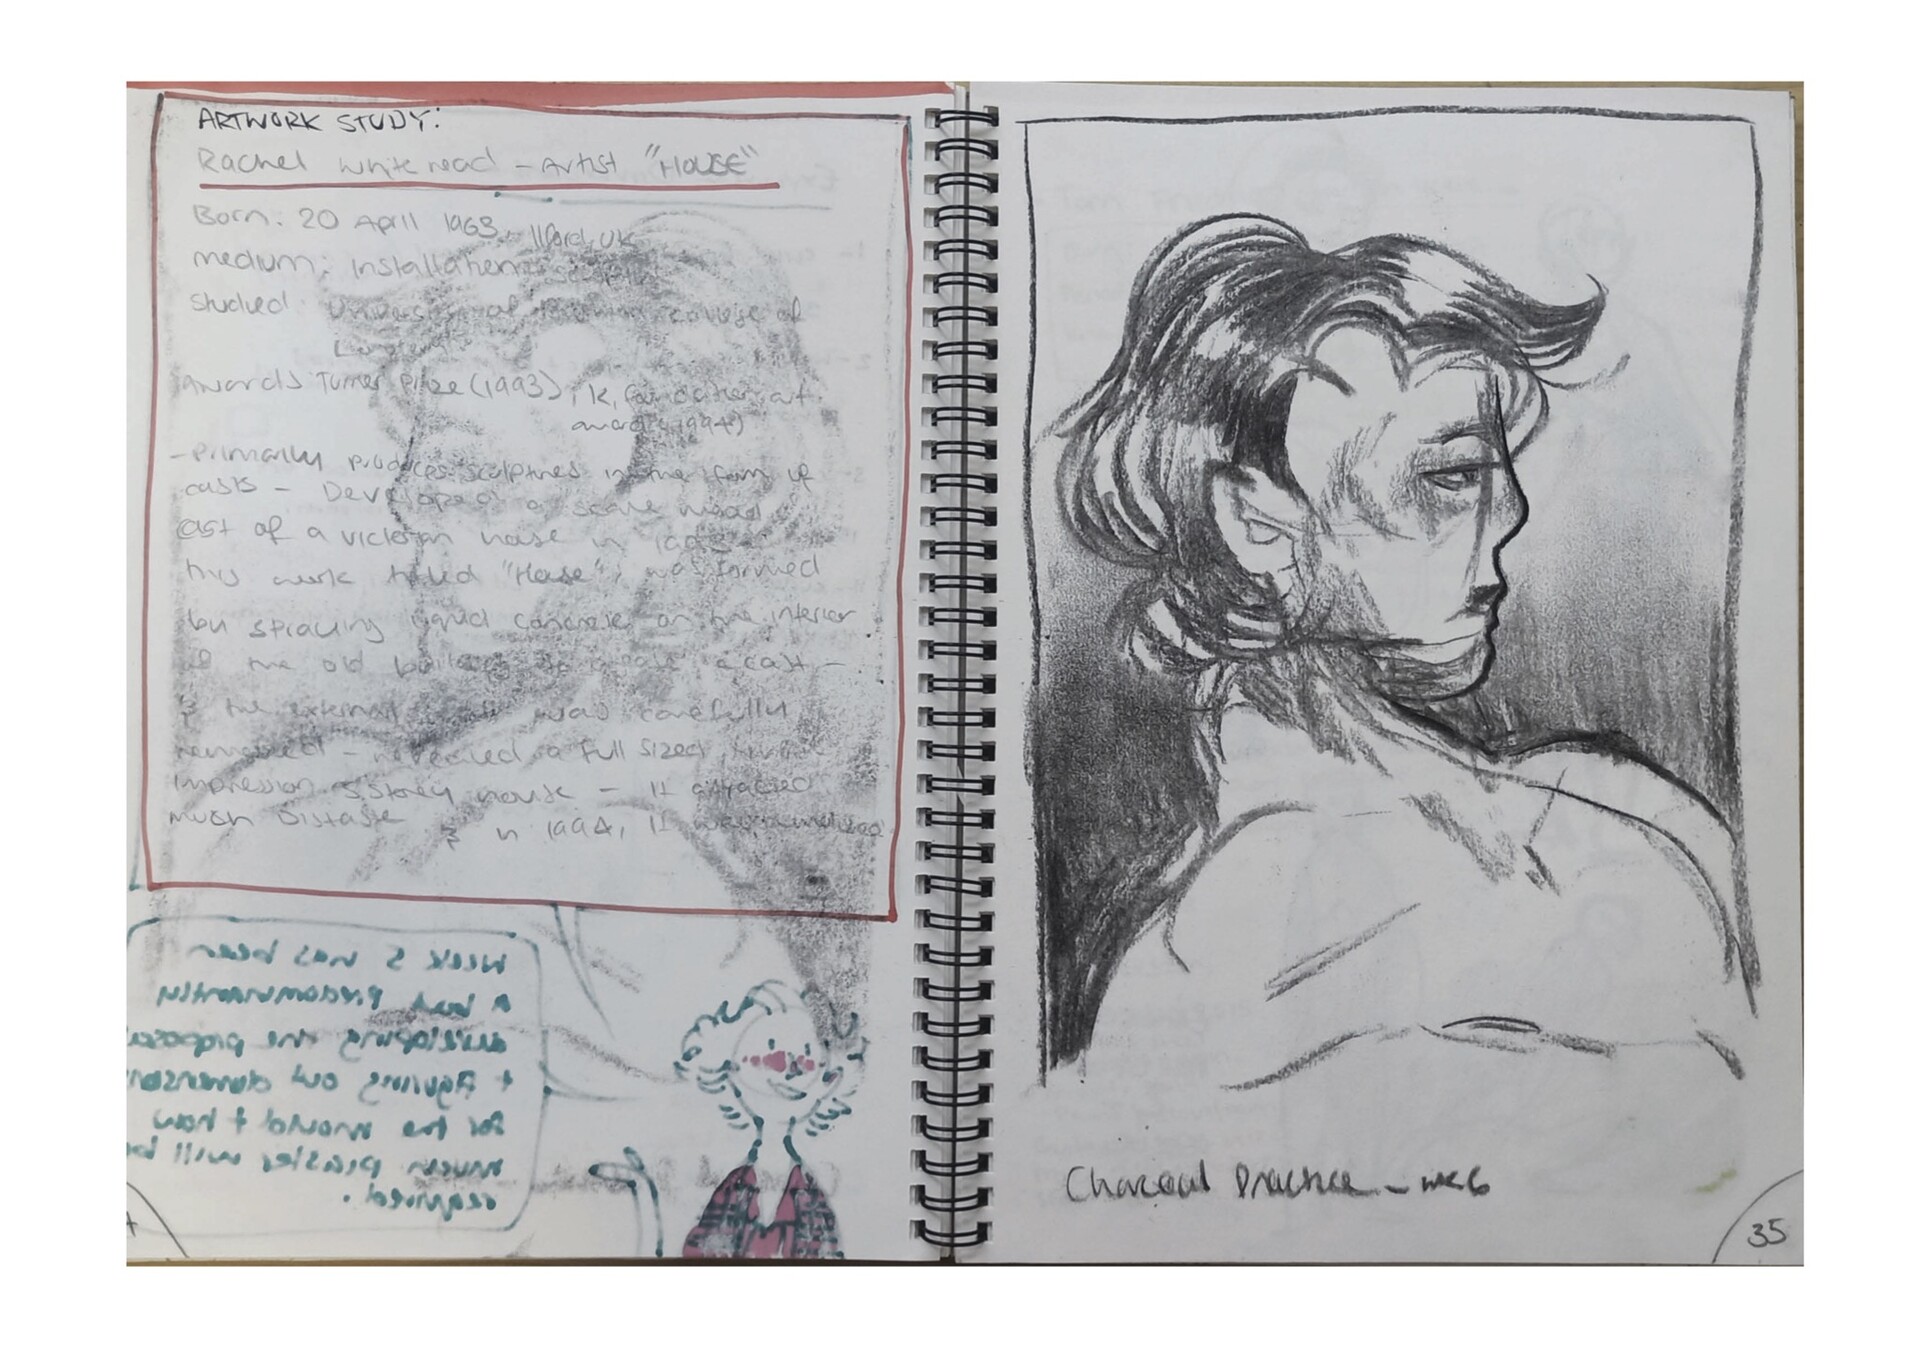 ARTWORK STUDY:
Rachel Whiteread - Artist "HOUSE"
Born: 20 April 1963, Ilford, UK
medium: Installation
Studied University of college of
Awards Turner Prize (1993), K, Foundation art
award (1994)
- Primarily produces sculptures in the form of
casts - Developed a scale
cast of a victorian house in
this work titled "House", was formed
by spraying liquid concrete on the interior
of the old building to create a cast -
& the external was carefully
removed - revealed a full sized
impression storey house - It attracted
much Distaste & in 1994, it was
Week 5 has been
A but predominantly
developing the proposal
+ figuring out dimensions
for the mould + how
much plaster will be
required.
Charcoal Practice - WK6
35